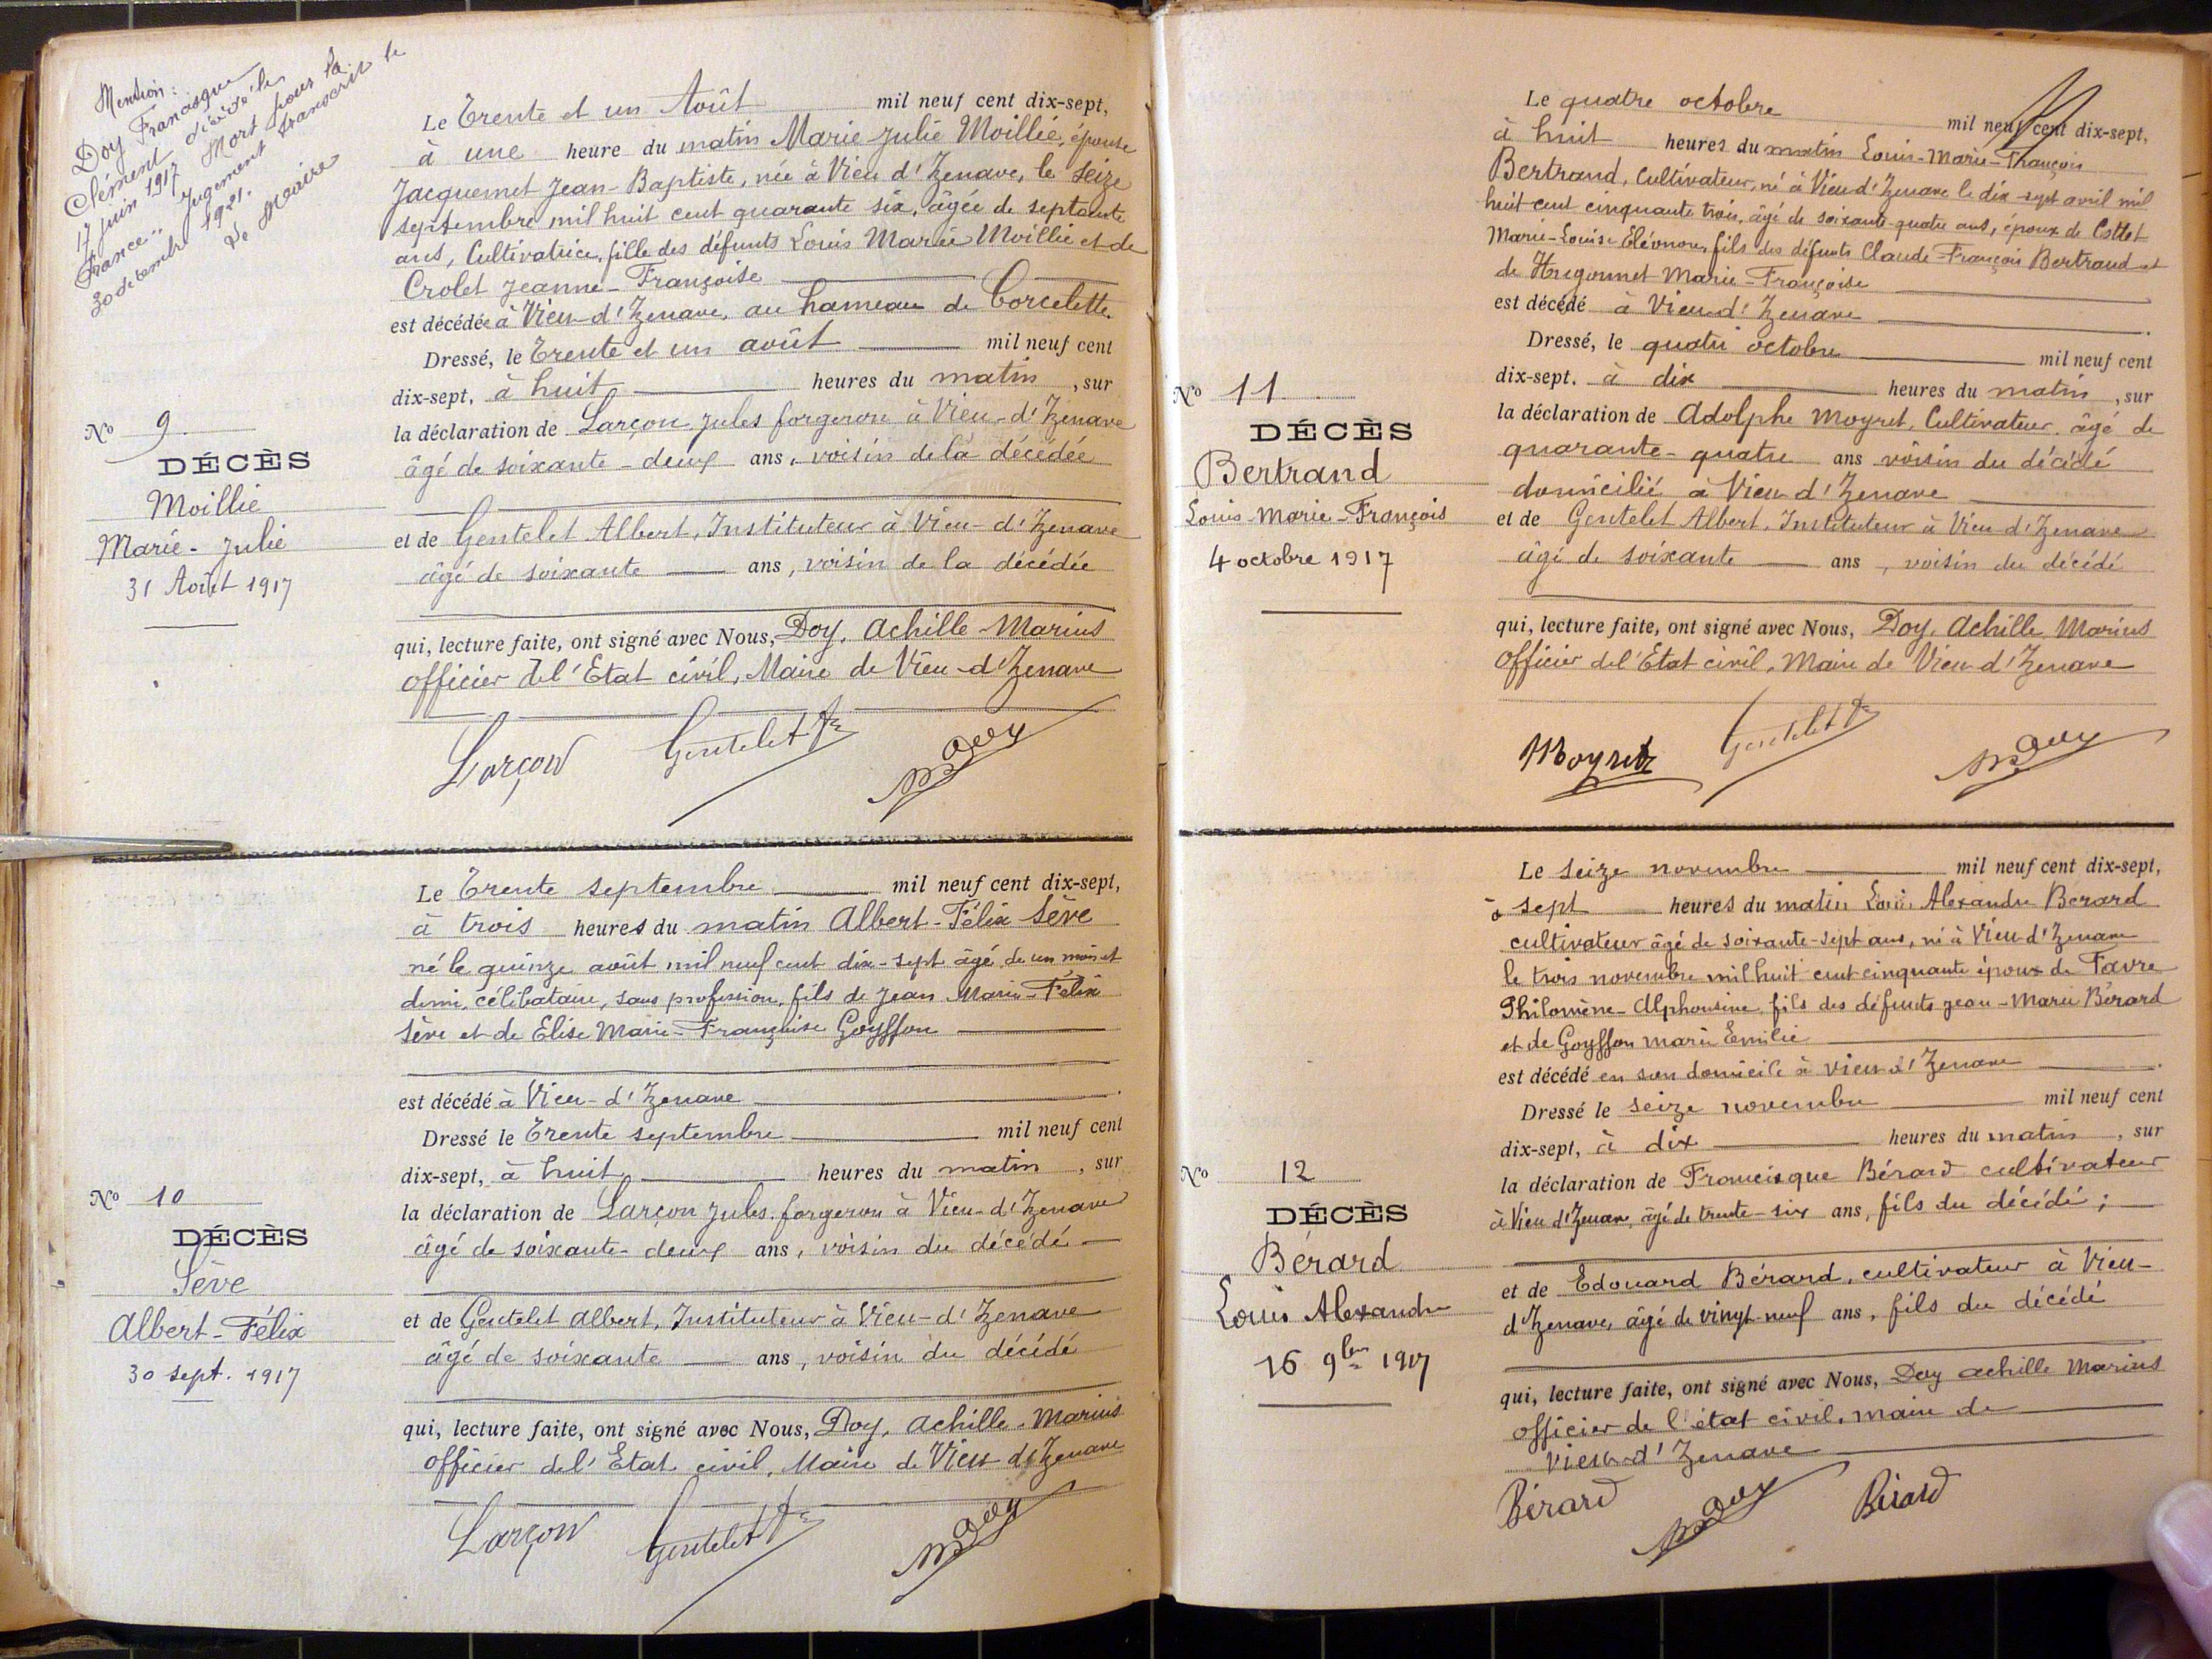 Mention :
Doy Francisque
Clément décédé le
17 juin 1917 Mort pour la
France .. Jugement transcrit le
30 décembre 1921.
Le Maire
Le Trente et un Août mil neuf cent dix-sept,
à une heure du matin Marie Julie Moillié, épouse
Jacquemet Jean-Baptiste, née à Vieu d'Izenave, le seize
septembre mil huit cent quarante six, âgée de septante
ans, Cultivatrice, fille des défunts Louis Marie Moillié et de
Crolet Jeanne-Françoise
est décédée à Vieu-d'Izenave, au hameau de Corcelette.
Dressé, le Trente et un août mil neuf cent
dix-sept, à huit heures du matin, sur
la déclaration de Larçon Jules forgeron à Vieu-d'Izenave
âgé de soixante-deux ans, voisin de la décédée
et de Gentelet Albert, Instituteur à Vieu-d'Izenave
âgé de soixante ans, voisin de la décédée
qui, lecture faite, ont signé avec Nous, Doy, Achille-Marius
officier de l'Etat civil, Maire de Vieu-d'Izenave
Larçon Gentelet Doy
No 9
DÉCÈS
Moillié
Marie-Julie
31 Août 1917
Le Trente septembre mil neuf cent dix-sept,
à trois heures du matin Albert-Félix Sève
né le quinze août mil neuf cent dix-sept âgé de un mois et
demi, célibataire, sans profession, fils de Jean Marie-Félix
Sève et de Elise Marie-Françoise Goyffon
est décédé à Vieu-d'Izenave
Dressé le Trente septembre mil neuf cent
dix-sept, à huit heures du matin, sur
la déclaration de Larçon Jules, forgeron à Vieu-d'Izenave
âgé de soixante-deux ans, voisin du décédé
et de Gentelet Albert, Instituteur à Vieu-d'Izenave
âgé de soixante ans, voisin du décédé
qui, lecture faite, ont signé avec Nous, Doy, Achille-Marius
officier de l'Etat civil, Maire de Vieu-d'Izenave
Larçon Gentelet Doy
No 10
DÉCÈS
Sève
Albert-Félix
30 sept. 1917
Le quatre octobre mil neuf cent dix-sept,
à huit heures du matin Louis-Marie-François
Bertrand, Cultivateur, né à Vieu d'Izenave le dix-sept avril mil
huit cent cinquante trois, âgé de soixante-quatre ans, époux de Cottet
Marie-Louise Eléonore, fils des défunts Claude-François Bertrand et
de Hugonnet Marie-Françoise
est décédé à Vieu d'Izenave
Dressé, le quatre octobre mil neuf cent
dix-sept. à dix heures du matin, sur
la déclaration de Adolphe Moyret, Cultivateur, âgé de
quarante-quatre ans voisin du décédé
domicilié à Vieu d'Izenave
et de Gentelet Albert, Instituteur à Vieu-d'Izenave
âgé de soixante ans, voisin du décédé
qui, lecture faite, ont signé avec Nous, Doy, Achille Marius
Officier de l'Etat civil, Maire de Vieu-d'Izenave
Moyret Gentelet Doy
No 11
DÉCÈS
Bertrand
Louis-Marie-François
4 octobre 1917
Le seize novembre mil neuf cent dix-sept,
à sept heures du matin Louis Alexandre Bérard
cultivateur âgé de soixante-sept ans, né à Vieu-d'Izenave
le trois novembre mil huit cent cinquante époux de Favre
Philomène-Alphonsine, fils des défunts Jean-Marie Bérard
et de Goyffon Marie Emilie
est décédé en son domicile à Vieu-d'Izenave
Dressé le seize novembre mil neuf cent
dix-sept, à dix heures du matin, sur
la déclaration de Francisque Bérard cultivateur
à Vieu d'Izenave, âgé de trente-six ans, fils du décédé ;
et de Edouard Bérard, cultivateur à Vieu-
d'Izenave, âgé de vingt-neuf ans, fils du décédé
qui, lecture faite, ont signé avec Nous, Doy Achille Marius
officier de l'état civil, maire de
Vieu-d'Izenave
Bérard Doy Bérard
No 12
DÉCÈS
Bérard
Louis Alexandre
16 9bre 1917